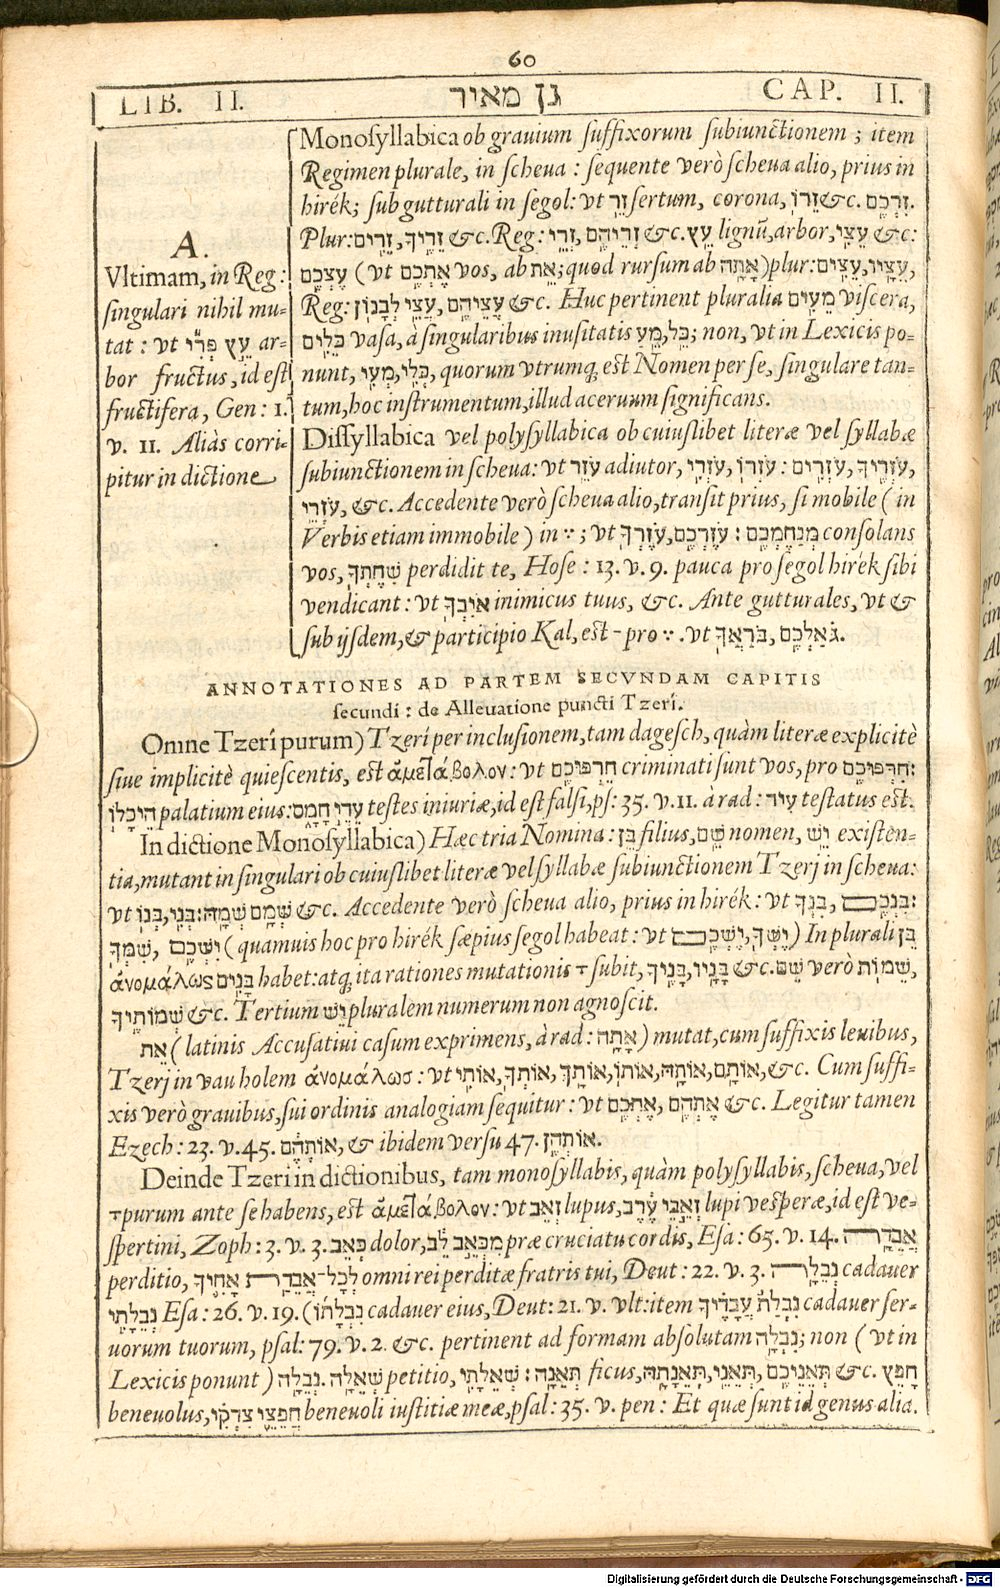 60
LIB. II. גן מאיר CAP. II.
A.
Vltimam, in Reg:
singulari nihil mu-
tat: vt עֵץ פְּרִי ar-
bor fructus, id est
fructifera, Gen: 1.
v. 11. Aliàs corri-
pitur in dictione
Monosyllabica ob grauium suffixorum subiunctionem; item
Regimen plurale, in scheva: sequente verò scheva alio, prius in
hirék; sub gutturali in segol: vt זֵר sertum, corona, זֵרוֹ &c. זִרְכֶם.
Plur: זֵרִים, זֵרֶיךָ &c. Reg: זְרֵי, זְרֵיהֶם &c. עֵץ lignũ, arbor, עֵצִי &c:
עֶצְכֶם (vt אֶתְכֶם vos, ab אֵת; quod rursum ab אָתָה) plur: עֵצִים, עֵצָיו,
Reg: עֲצֵי לְבָנוֹן, עֲצֵיהֶם &c. Huc pertinent pluralia מֵעִים viscera,
כֵּלִים vasa, à singularibus inusitatis כֵּל, מֵע; non, vt in Lexicis po-
nunt, כְּלִי, מְעִי, quorum vtrumq; est Nomen per se, singulare tan-
tum, hoc instrumentum, illud aceruum significans.
Dissyllabica vel polysyllabica ob cuiuslibet literæ vel syllabæ
subiunctionem in scheva: vt עֹזֵר adiutor, עֹזְרִי, עֹזְרוֹ: עֹזְרִים, עֹזְרֶיךָ,
עֹזְרֵי, &c. Accedente verò scheva alio, transit prius, si mobile (in
Verbis etiam immobile) in ֶ; vt עֹזֶרְךָ, עֹזֶרְכֶם: מְנַחֶמְכֶם consolans
vos, שִׁחֶתְךָ perdidit te, Hose: 13. v. 9. pauca pro segol hirék sibi
vendicant: vt אֹיִבְךָ inimicus tuus, &c. Ante gutturales, vt &
sub ijsdem, & participio Kal, est ַ pro ֶ. vt בֹּרַאֲךָ, גֹּאַלְכֶם.
ANNOTATIONES AD PARTEM SECVNDAM CAPITIS
secundi: de Alleuatione puncti Tzerí.
Omne Tzerí purum) Tzerí per inclusionem, tam dagesch, quàm literæ explicitè
siue implicitè quiescentis, est ἀμετάβολον: vt חֵרְפוּכֶם criminati sunt vos, pro חִרְּפוּכֶם:
הֵיכָלוֹ palatium eius: עֵדֵי חָמָס testes iniuriæ, id est falsi, ps: 35. v. 11. à rad: עִיד testatus est.
In dictione Monosyllabica) Hæc tria Nomina: בֵּן filius, שֵׁם nomen, יֵשׁ existen-
tia, mutant in singulari ob cuiuslibet literæ vel syllabæ subiunctionem Tzerj in scheva:
vt בְּנִי, בְּנוֹ: שְׁמָם שְׁמָהּ &c. Accedente verò scheva alio, prius in hirék: vt בִּנְךָ, בִּנְכֶם:
שִׁמְךָ, יִשְׁכֶם (quamuis hoc pro hirék sæpius segol habeat: vt יֶשְׁךָ, יֶשְׁכֶם) In plurali בֵּן
ἀνομάλως בָּנִים habet: atq; ita rationes mutationis ָ subit, בָּנֶיךָ, בָּנָיו &c. שֵׁם verò שֵׁמוֹת,
שְׁמוֹתֶיךָ &c. Tertium יֵשׁ pluralem numerum non agnoscit.
אֵת (latinis Accusatiui casum exprimens, à rad: אָתָה) mutat, cum suffixis leuibus,
Tzerj in vau holem ἀνομάλως: vt אוֹתִי, אוֹתְךָ, אוֹתָךְ, אוֹתוֹ, אוֹתָהּ, אוֹתָם, &c. Cum suffi-
xis verò grauibus, sui ordinis analogiam sequitur: vt אֶתְכֶם, אֶתְהֶם &c. Legitur tamen
Ezech: 23. v. 45. אוֹתְהֶם, & ibidem versu 47. אוֹתְהֶן.
Deinde Tzerí in dictionibus, tam monosyllabis, quàm polysyllabis, scheva, vel
ָ purum ante se habens, est ἀμετάβολον: vt זְאֵב lupus, זְאֵבֵי עֶרֶב lupi vesperæ, id est ve-
spertini, Zoph: 3. v. 3. כְּאֵב dolor, מִכְּאֵב לֵב præ cruciatu cordis, Esa: 65. v. 14. אֲבֵדָה
perditio, לְכָל־אֲבֵדַת אָחִיךָ omni rei perditæ fratris tui, Deut: 22. v. 3. נְבֵלָה cadauer
נְבֵלָתִי Esa: 26. v. 19. (נִבְלָתוֹ cadauer eius, Deut: 21. v. vlt: item נִבְלַת עֲבָדֶיךָ cadauer ser-
uorum tuorum, psal: 79. v. 2. &c. pertinent ad formam absolutam נִבְלָה; non (vt in
Lexicis ponunt) נְבֵלָה. שְׁאֵלָה petitio, שְׁאֵלָתִי: תְּאֵנָה ficus, תְּאֵנָתָהּ, תְּאֵנֵי, תְּאֵנֵיכֶם &c. חָפֵץ
beneuolus, חֲפֵצֵי צִדְקִי beneuoli iustitiæ meæ, psal: 35. v. pen: Et quæ sunt id genus alia.
Digitalisierung gefördert durch die Deutsche Forschungsgemeinschaft - DFG